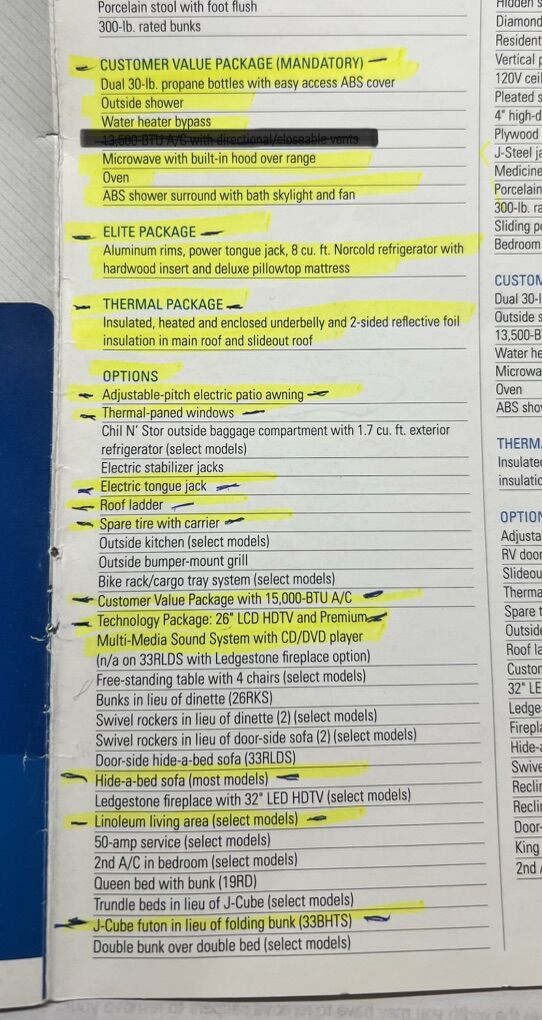 Porcelain stool with foot flush
300-lb. rated bunks
CUSTOMER VALUE PACKAGE (MANDATORY)
Dual 30-lb. propane bottles with easy access ABS cover
Outside shower
Water heater bypass
13,500-BTU A/C with directional/closeable vents
Microwave with built-in hood over range
Oven
ABS shower surround with bath skylight and fan
ELITE PACKAGE
Aluminum rims, power tongue jack, 8 cu. ft. Norcold refrigerator with
hardwood insert and deluxe pillowtop mattress
THERMAL PACKAGE
Insulated, heated and enclosed underbelly and 2-sided reflective foil
insulation in main roof and slideout roof
OPTIONS
Adjustable-pitch electric patio awning
Thermal-paned windows
Chil N' Stor outside baggage compartment with 1.7 cu. ft. exterior
refrigerator (select models)
Electric stabilizer jacks
Electric tongue jack
Roof ladder
Spare tire with carrier
Outside kitchen (select models)
Outside bumper-mount grill
Bike rack/cargo tray system (select models)
Customer Value Package with 15,000-BTU A/C
Technology Package: 26" LCD HDTV and Premium
Multi-Media Sound System with CD/DVD player
(n/a on 33RLDS with Ledgestone fireplace option)
Free-standing table with 4 chairs (select models)
Bunks in lieu of dinette (26RKS)
Swivel rockers in lieu of dinette (2) (select models)
Swivel rockers in lieu of door-side sofa (2) (select models)
Door-side hide-a-bed sofa (33RLDS)
Hide-a-bed sofa (most models)
Ledgestone fireplace with 32" LED HDTV (select models)
Linoleum living area (select models)
50-amp service (select models)
2nd A/C in bedroom (select models)
Queen bed with bunk (19RD)
Trundle beds in lieu of J-Cube (select models)
J-Cube futon in lieu of folding bunk (33BHTS)
Double bunk over double bed (select models)
Hidden
Diamond
Resident
Vertical
120V
Pleated
4"
Plywood
J-Steel
Medicine
Porcelain
300-lb.
Sliding
Bedroom
Dual
Outside
Water
Oven
ABS
RV door
32" LE
King
2nd